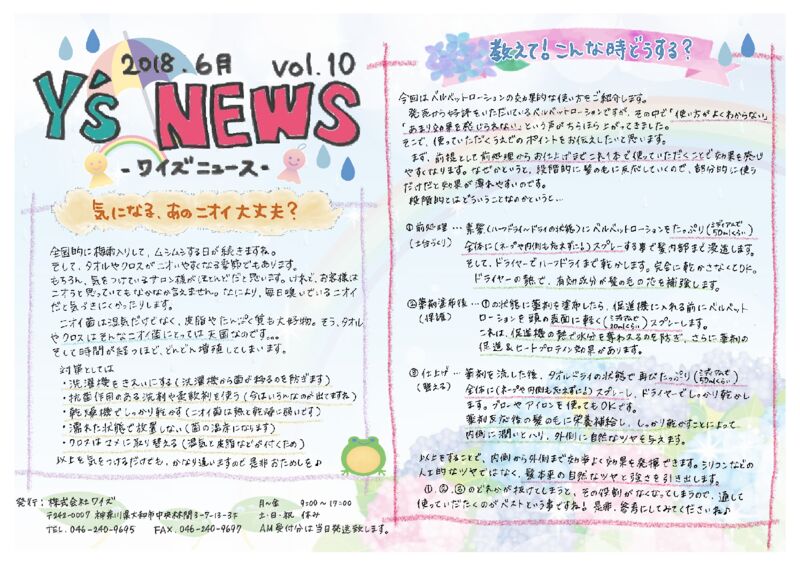 2018.6月 vol.10
Y's NEWS
-ワイズニュース-
気になる、あのニオイ大丈夫?
全国的に梅雨入りして、ムシムシする日が続きますね。
そして、タオルやクロスがニオいやすくなる季節でもあります。
もちろん、気をつけているサロン様がほとんどだと思います。けれど、お客様は
ニオうと思っていてもなかなか言えません。なにより、毎日嗅いでいるニオイ
だと気づきにくかったりします。
ニオイ菌は湿気だけでなく、皮脂やたんぱく質も大好物。そう、タオル
やクロスはそんなニオイ菌にとっては天国なのです…。
そして時間が経つほど、どんどん増殖してしまいます。
対策としては
・洗濯機をきれいにする(洗濯機から菌が移るのを防ぎます)
・抗菌作用のある洗剤や柔軟剤を使う(今はいろんなのが出てますね)
・乾燥機でしっかり乾かす(ニオイ菌は熱と乾燥に弱いです)
・濡れた状態で放置しない(菌の温床になります)
・クロスはマメに取り替える(湿気と皮脂などが付くため)
以上を気をつけるだけでも、かなり違いますので是非おためしを♪
発行:株式会社ワイズ 月~金 9:00~17:00
〒242-0007 神奈川県大和市中央林間3-7-13-3F 土・日・祝 休み
TEL.046-240-9695 FAX.046-240-9697 AM受付分は当日発送致します。
教えて!こんな時どうする?
今回はベルベットローションの効果的な使い方をご紹介します。
発売から好評をいただいているベルベットローションですが、その中で「使い方がよくわからない」
「あまり効果を感じられない」という声がちらほら上がってきました。
そこで、使っていただくうえでのポイントをお伝えしたいと思います。
まず、前提として前処理からお仕上げまでこれ1本で使っていただくことで効果を感じ
やすくなります。なぜかというと、段階的に髪の毛に反応していくので、部分的に使う
だけだと効果が薄れやすいのです。
段階的とはどういうことなのかというと…
①前処理 … 素髪(ハーフドライ~ドライの状態)にベルベットローションをたっぷり(ミディアムで50mlくらい)
(土台づくり) 全体に(ネープや内側も忘れずに)スプレーする事で髪内部まで浸透します。
そして、ドライヤーでハーフドライまで乾かします。完全に乾かさなくてOK。
ドライヤーの熱で、有効成分が髪のもの たを補強します。
②薬剤塗布後 … ①の状態に薬剤を塗布したら、促進機に入れる前にベルベット
(保護) ローションを頭の表面に軽く(ミディアムで20mlくらい)スプレーします。
これは、促進機の熱で水分を奪われるのを防ぎ、さらに薬剤の
促進&ヒートプロテイン効果があります。
③仕上げ … 薬剤を流した後、タオルドライの状態で再びたっぷり(ミディアムで50mlくらい)
(整える) 全体に(ネープや内側も忘れずに)スプレーし、ドライヤーでしっかり乾かし
ます。ブローやアイロンを使ってもOKです。
薬剤反応後の髪の毛に栄養補給し、しっかり乾かすことによって
内側に潤いとハリ、外側に自然なツヤを与えます。
以上をすることで、内側から外側まで効率よく効果を発揮できます。シリコンなどの
人工的なツヤではなく、髪本来の自然なツヤと強さを引き出します。
①、②、③のどれかが抜けてしまうと、その役割がなくなってしまうので、通して
使っていただくのがベストという事ですね!是非、参考にしてみてくださいね♪